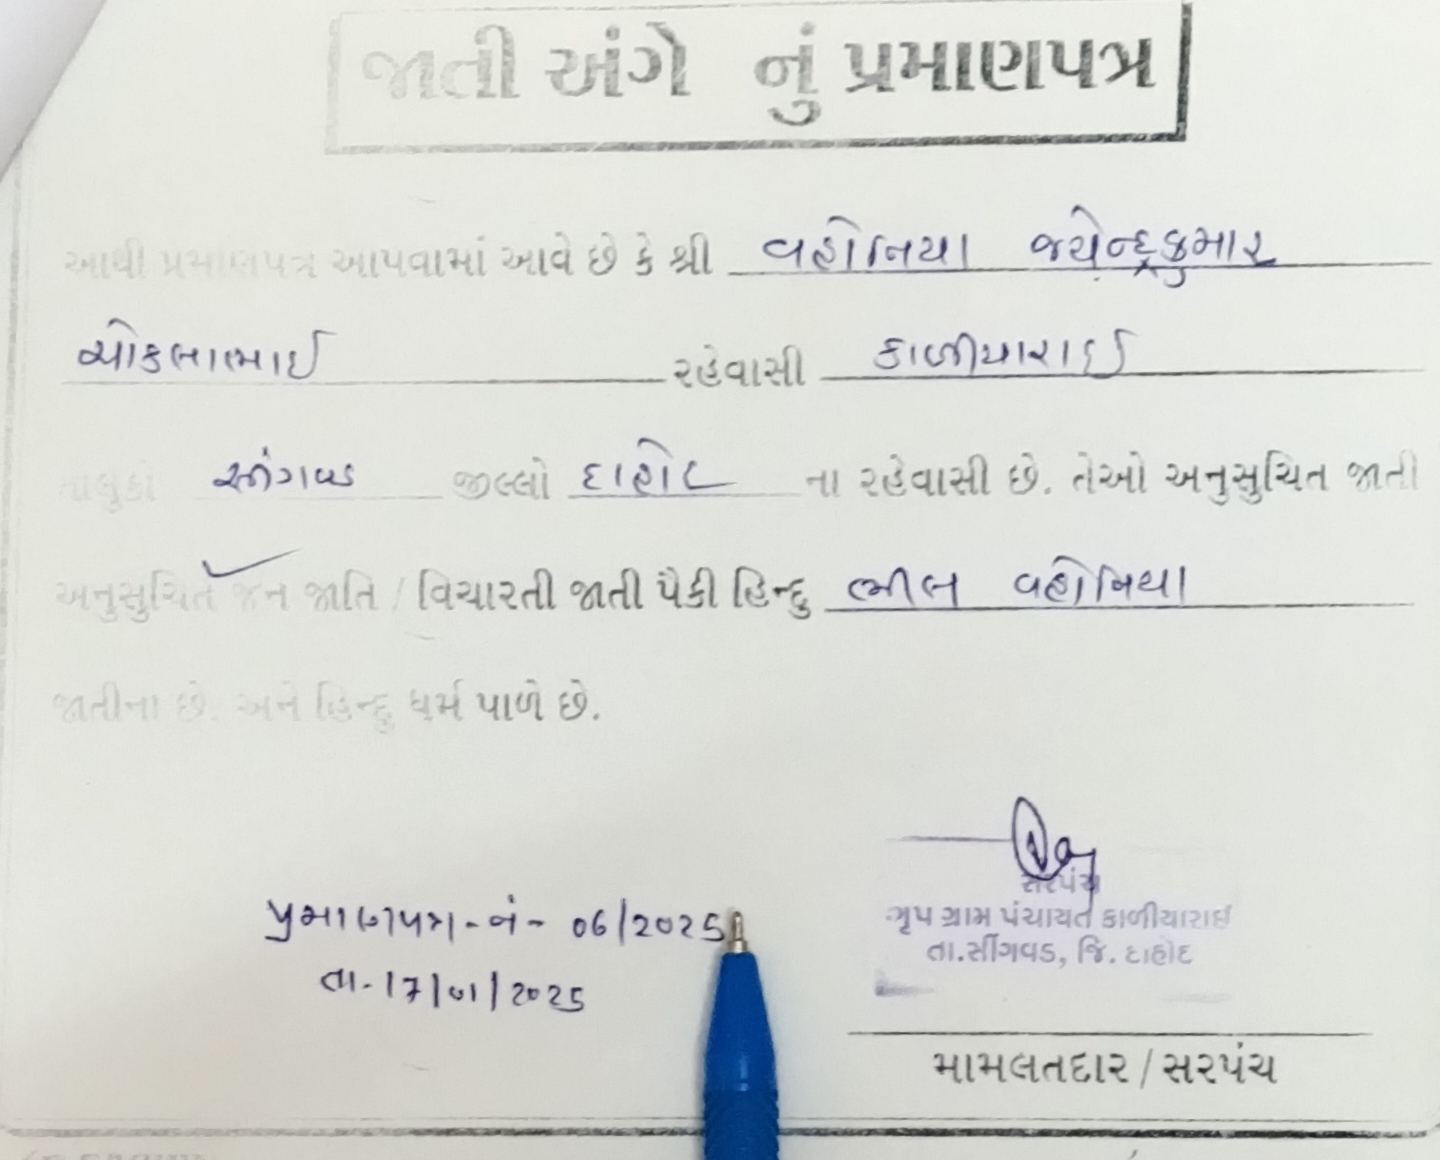 જાતી અંગે નું પ્રમાણપત્ર
આથી પ્રમાણપત્ર આપવામાં આવે છે કે શ્રી વહોનિયા જયેન્દ્રકુમાર
ચોકલાભાઈ રહેવાસી કાળીયારાઈ
તાલુકો સીંગવડ જીલ્લો દાહોદ ના રહેવાસી છે. તેઓ અનુસુચિત જાતી
અનુસુચિત જન જાતિ / વિચારતી જાતી પૈકી હિન્દુ ભીલ વહોનિયા
જાતીના છે. અને હિન્દુ ધર્મ પાળે છે.
સરપંચ
પ્રમાણપત્ર-નં- 06/2025 ગૃપ ગ્રામ પંચાયત કાળીયારાઈ
તા.સીંગવડ, જિ. દાહોદ
તા-17/01/2025
મામલતદાર / સરપંચ